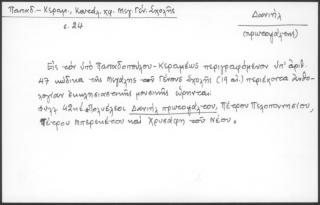 Παπαδ.-Κεραμ., Κατάλ. χφ. Μεγ. Γέν. Σχολῆς
σ. 24
Δανιήλ
(πρωτοψάλτης)
Εἰς τὸν ὑπὸ Παπαδοπούλου-Κεραμέως περιγραφόμενον ὑπ' ἀριθ.
47 κώδικα τῆς Μεγάλης τοῦ Γένους Σχολῆς (19 αἰ.) περιέχεται ἀνθο-
λογίαν ἐκκλησιαστικῆς μουσικῆς
42 Πολυέλεοι Δανιήλ πρωτοψάλτου, Πέτρου Πελοποννησίου,
Πέτρου Μπερεκέτου καὶ Χρυσάφη τοῦ Νέου.